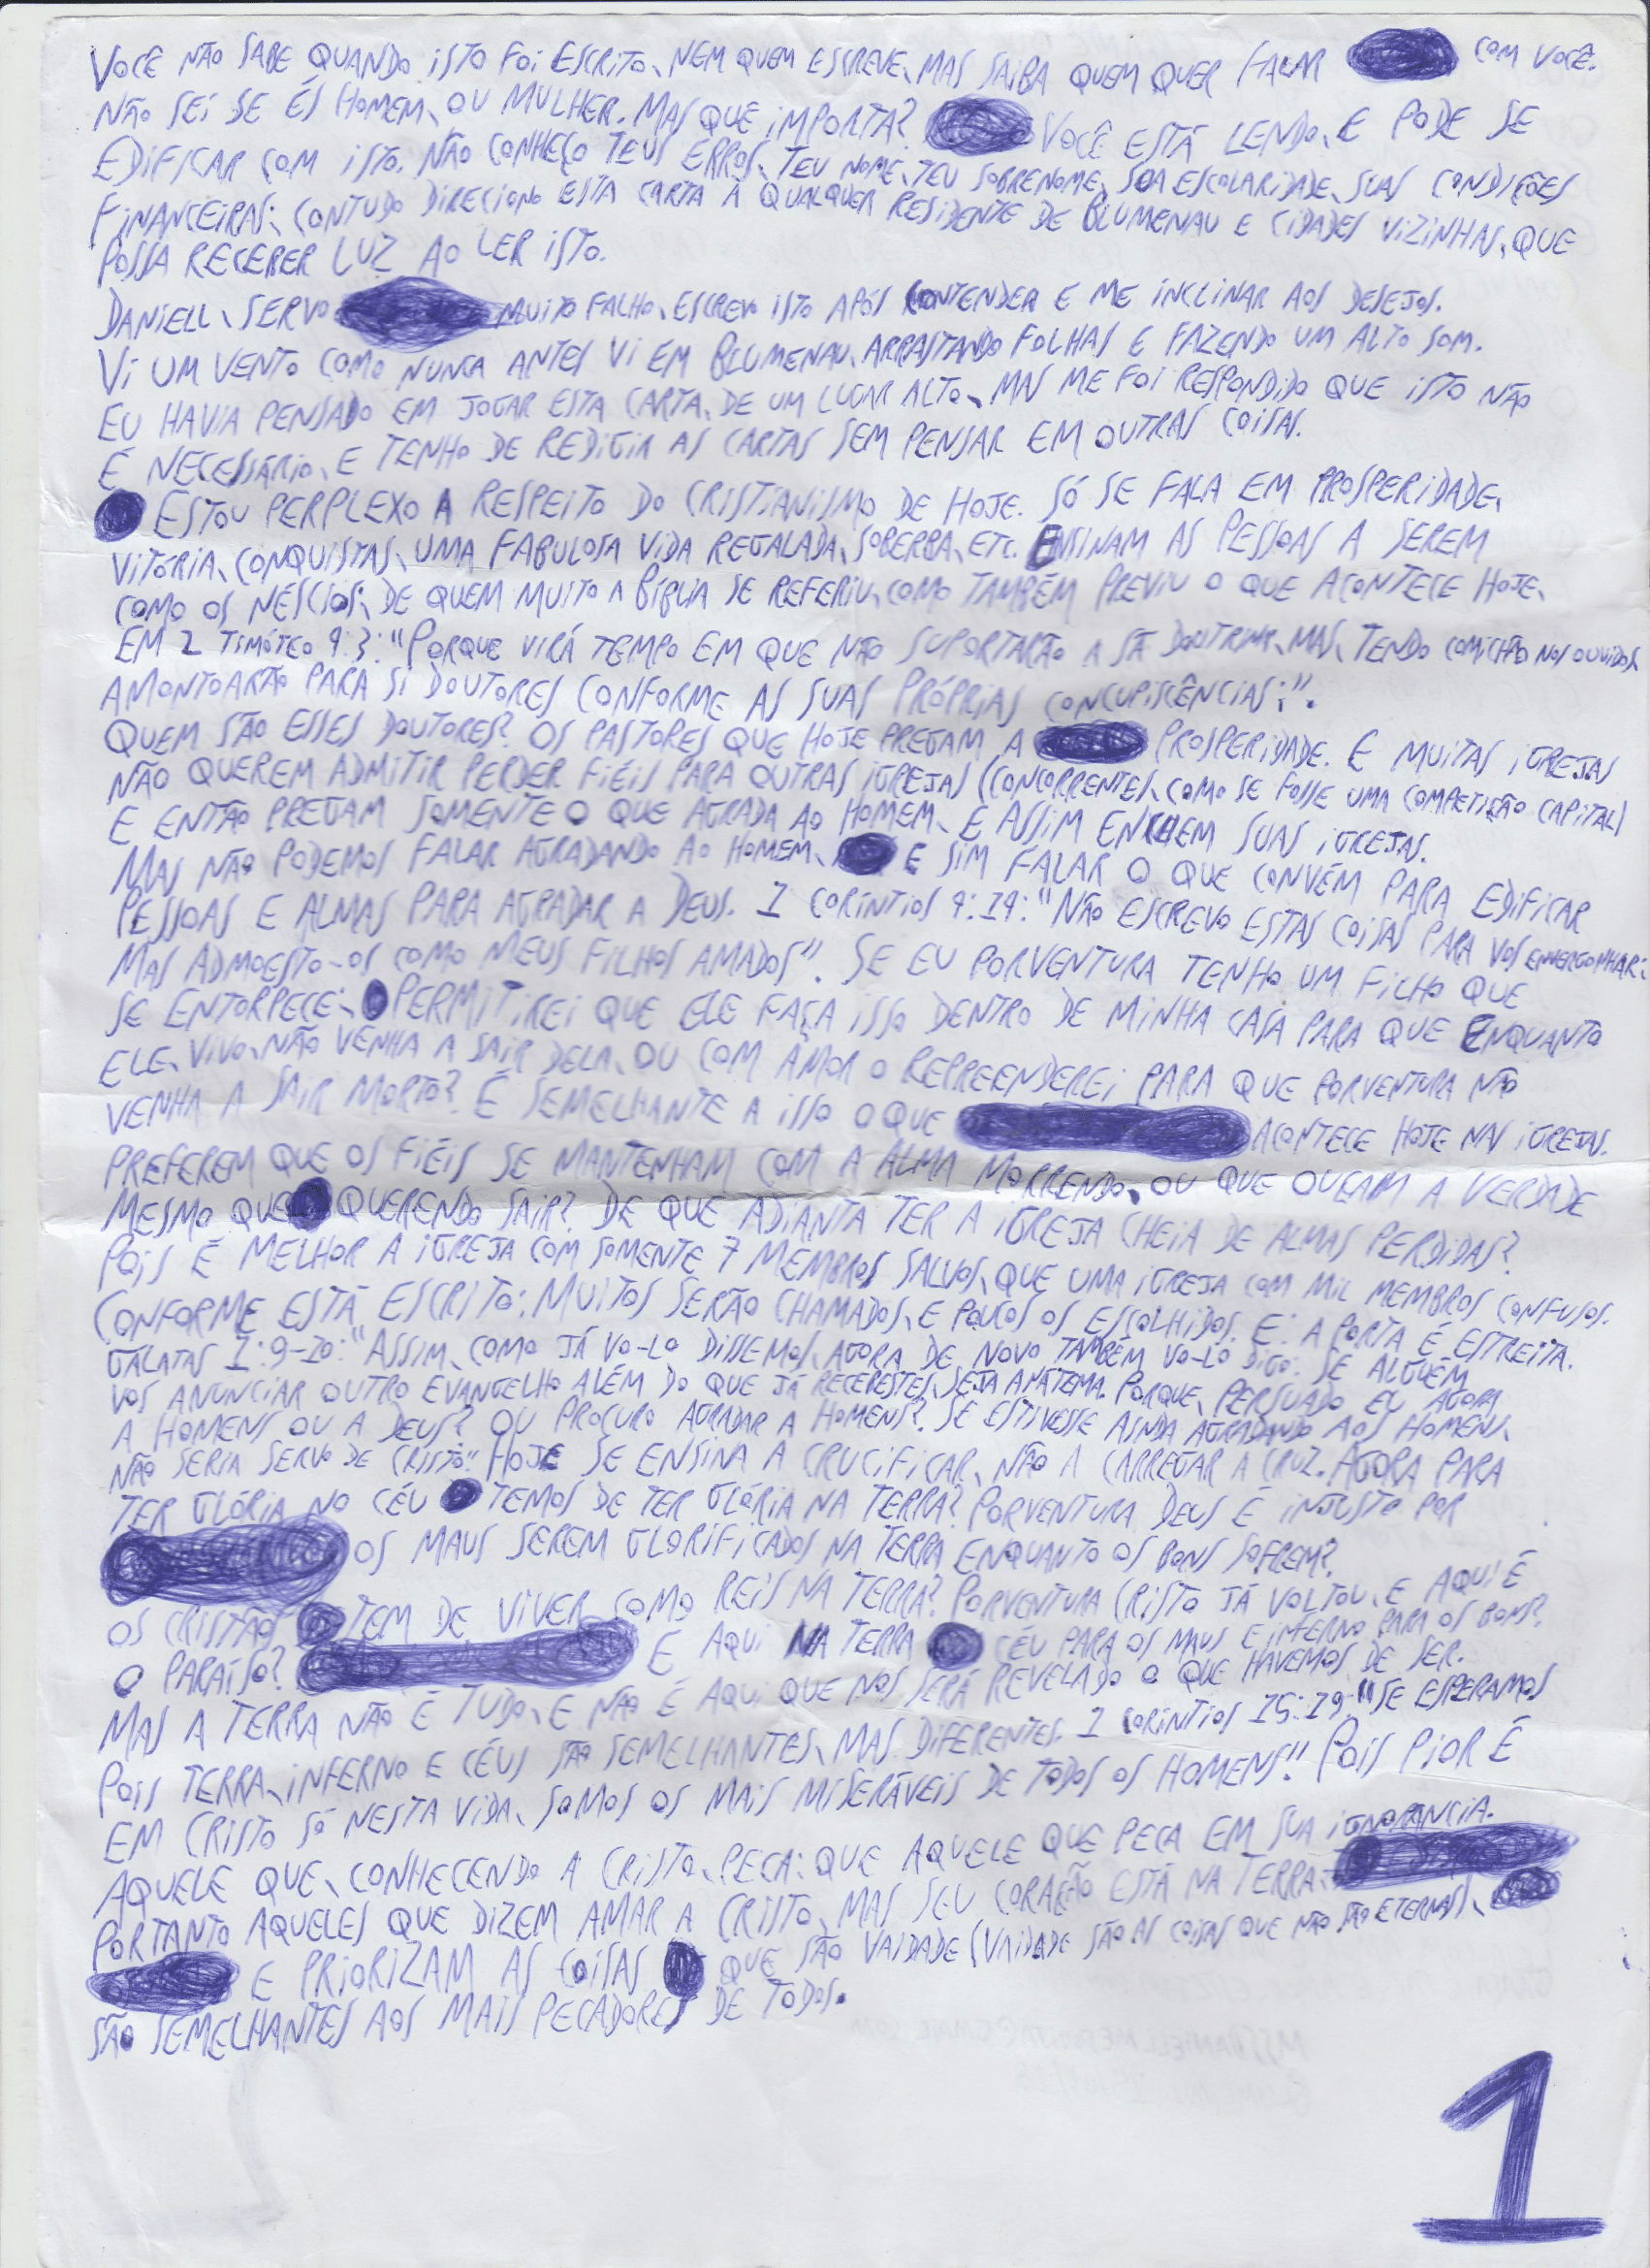 VOCÊ NÃO SABE QUANDO ISTO FOI ESCRITO, NEM QUEM ESCREVE, MAS SAIBA QUEM QUER FALAR COM VOCÊ.
NÃO SEI SE ÉS HOMEM, OU MULHER. MAS QUE IMPORTA? VOCÊ ESTÁ LENDO, E PODE SE
EDIFICAR COM ISTO. NÃO CONHEÇO TEUS ERROS, TEU NOME, TEU SOBRENOME, SUA ESCOLARIDADE, SUAS CONDIÇÕES
FINANCEIRAS; CONTUDO DIRECIONO ESTA CARTA À QUALQUER RESIDENTE DE BLUMENAU E CIDADES VIZINHAS, QUE
POSSA RECEBER LUZ AO LER ISTO.
DANIELL, SERVO MUITO FALHO, ESCREVO ISTO APÓS CONTENDER E ME INCLINAR AOS DESEJOS.
VI UM VENTO COMO NUNCA ANTES VI EM BLUMENAU, ARRASTANDO FOLHAS E FAZENDO UM ALTO SOM.
EU HAVIA PENSADO EM JOGAR ESTA CARTA, DE UM LUGAR ALTO, MAS ME FOI RESPONDIDO QUE ISTO NÃO
É NECESSÁRIO, E TENHO DE REDIGIR AS CARTAS SEM PENSAR EM OUTRAS COISAS.
ESTOU PERPLEXO A RESPEITO DO CRISTIANISMO DE HOJE. SÓ SE FALA EM PROSPERIDADE,
VITÓRIA, CONQUISTAS, UMA FABULOSA VIDA REGALADA, SOBERBA, ETC. ENSINAM AS PESSOAS A SEREM
COMO OS NÉSCIOS; DE QUEM MUITO A BÍBLIA SE REFERIU, COMO TAMBÉM PREVIU O QUE ACONTECE HOJE,
EM 2 TIMÓTEO 4:3: "PORQUE VIRÁ TEMPO EM QUE NÃO SUPORTARÃO A SÃ DOUTRINA, MAS, TENDO COMICHÃO NOS OUVIDOS,
AMONTOARÃO PARA SI DOUTORES CONFORME AS SUAS PRÓPRIAS CONCUPISCÊNCIAS;".
QUEM SÃO ESSES DOUTORES? OS PASTORES QUE HOJE PREGAM A PROSPERIDADE. E MUITAS IGREJAS
NÃO QUEREM ADMITIR PERDER FIÉIS PARA OUTRAS IGREJAS (CONCORRENTES, COMO SE FOSSE UMA COMPETIÇÃO CAPITAL)
E ENTÃO PREGAM SOMENTE O QUE AGRADA AO HOMEM, E ASSIM ENCHEM SUAS IGREJAS.
MAS NÃO PODEMOS FALAR AGRADANDO AO HOMEM, E SIM FALAR O QUE CONVÉM PARA EDIFICAR
PESSOAS E ALMAS PARA AGRADAR A DEUS. 1 CORÍNTIOS 4:14: "NÃO ESCREVO ESTAS COISAS PARA VOS ENVERGONHAR;
MAS ADMOESTO-OS COMO MEUS FILHOS AMADOS". SE EU PORVENTURA TENHO UM FILHO QUE
SE ENTORPECE; PERMITIREI QUE ELE FAÇA ISSO DENTRO DE MINHA CASA PARA QUE ENQUANTO
ELE, VIVO, NÃO VENHA A SAIR DELA, OU COM AMOR O REPREENDEREI PARA QUE PORVENTURA NÃO
VENHA A SAIR MORTO? É SEMELHANTE A ISSO O QUE ACONTECE HOJE NAS IGREJAS.
PREFEREM QUE OS FIÉIS SE MANTENHAM COM A ALMA MORRENDO, OU QUE OUÇAM A VERDADE
MESMO QUE QUERENDO SAIR? DE QUE ADIANTA TER A IGREJA CHEIA DE ALMAS PERDIDAS?
POIS É MELHOR A IGREJA COM SOMENTE 7 MEMBROS SALVOS, QUE UMA IGREJA COM MIL MEMBROS CONFUSOS.
CONFORME ESTÁ ESCRITO: MUITOS SERÃO CHAMADOS, E POUCOS OS ESCOLHIDOS. E: A PORTA É ESTREITA.
GÁLATAS 1:9-10: "ASSIM, COMO JÁ VO-LO DISSEMOS, AGORA DE NOVO TAMBÉM VO-LO DIGO. SE ALGUÉM
VOS ANUNCIAR OUTRO EVANGELHO ALÉM DO QUE JÁ RECEBESTES, SEJA ANÁTEMA. PORQUE, PERSUADO EU AGORA
A HOMENS OU A DEUS? OU PROCURO AGRADAR A HOMENS? SE ESTIVESSE AINDA AGRADANDO AOS HOMENS,
NÃO SERIA SERVO DE CRISTO." HOJE SE ENSINA A CRUCIFICAR, NÃO A CARREGAR A CRUZ. AGORA PARA
TER GLÓRIA NO CÉU TEMOS DE TER GLÓRIA NA TERRA? PORVENTURA DEUS É INJUSTO POR
OS MAUS SEREM GLORIFICADOS NA TERRA ENQUANTO OS BONS SOFREM?
OS CRISTÃOS TEM DE VIVER COMO REIS NA TERRA? PORVENTURA CRISTO JÁ VOLTOU, E AQUI É
O PARAÍSO? E AQUI NA TERRA CÉU PARA OS MAUS E INFERNO PARA OS BONS?
MAS A TERRA NÃO É TUDO, E NÃO É AQUI QUE NOS SERÁ REVELADO O QUE HAVEMOS DE SER.
POIS TERRA, INFERNO E CÉUS SÃO SEMELHANTES, MAS DIFERENTES. 1 CORÍNTIOS 15:19: "SE ESPERAMOS
EM CRISTO SÓ NESTA VIDA, SOMOS OS MAIS MISERÁVEIS DE TODOS OS HOMENS." POIS PIOR É
AQUELE QUE, CONHECENDO A CRISTO, PECA: QUE AQUELE QUE PECA EM SUA IGNORÂNCIA.
PORTANTO AQUELES QUE DIZEM AMAR A CRISTO, MAS SEU CORAÇÃO ESTÁ NA TERRA
E PRIORIZAM AS COISAS QUE SÃO VAIDADE (VAIDADE SÃO AS COISAS QUE NÃO SÃO ETERNAS),
SÃO SEMELHANTES AOS MAIS PECADORES DE TODOS.
1